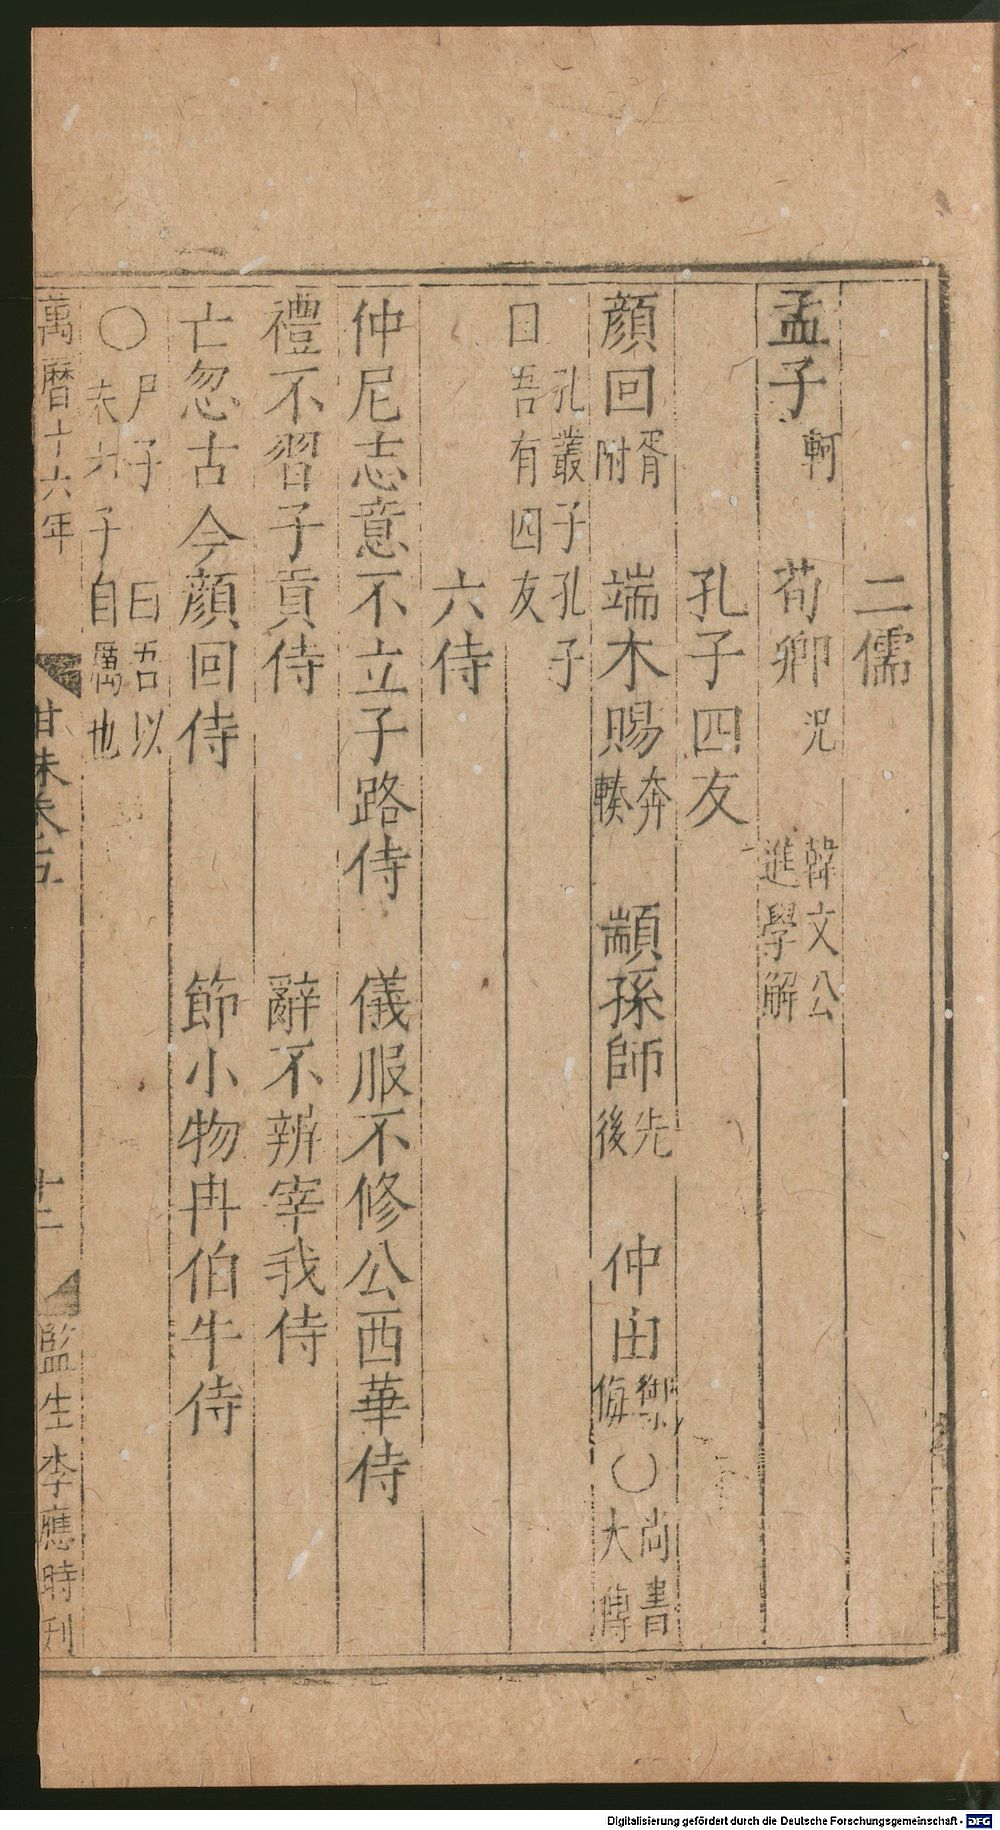 二儒
孟子 軻　荀卿 况　韓文公進學解
孔子四友
顏回 胥附　端木賜 奔輳　顓孫師 先後　仲由 禦侮　〇 尚書大傳
孔叢子孔子曰吾有四友
六侍
仲尼志意不立子路侍　儀服不修公西華侍
禮不習子貢侍　辭不辨宰我侍
亡忽古今顏回侍　節小物冉伯牛侍
〇 尸子曰吾以夫六子自厲也
萬曆十六年　卷五　十二　監生李應時刊
Digitalisierung gefördert durch die Deutsche Forschungsgemeinschaft - DFG